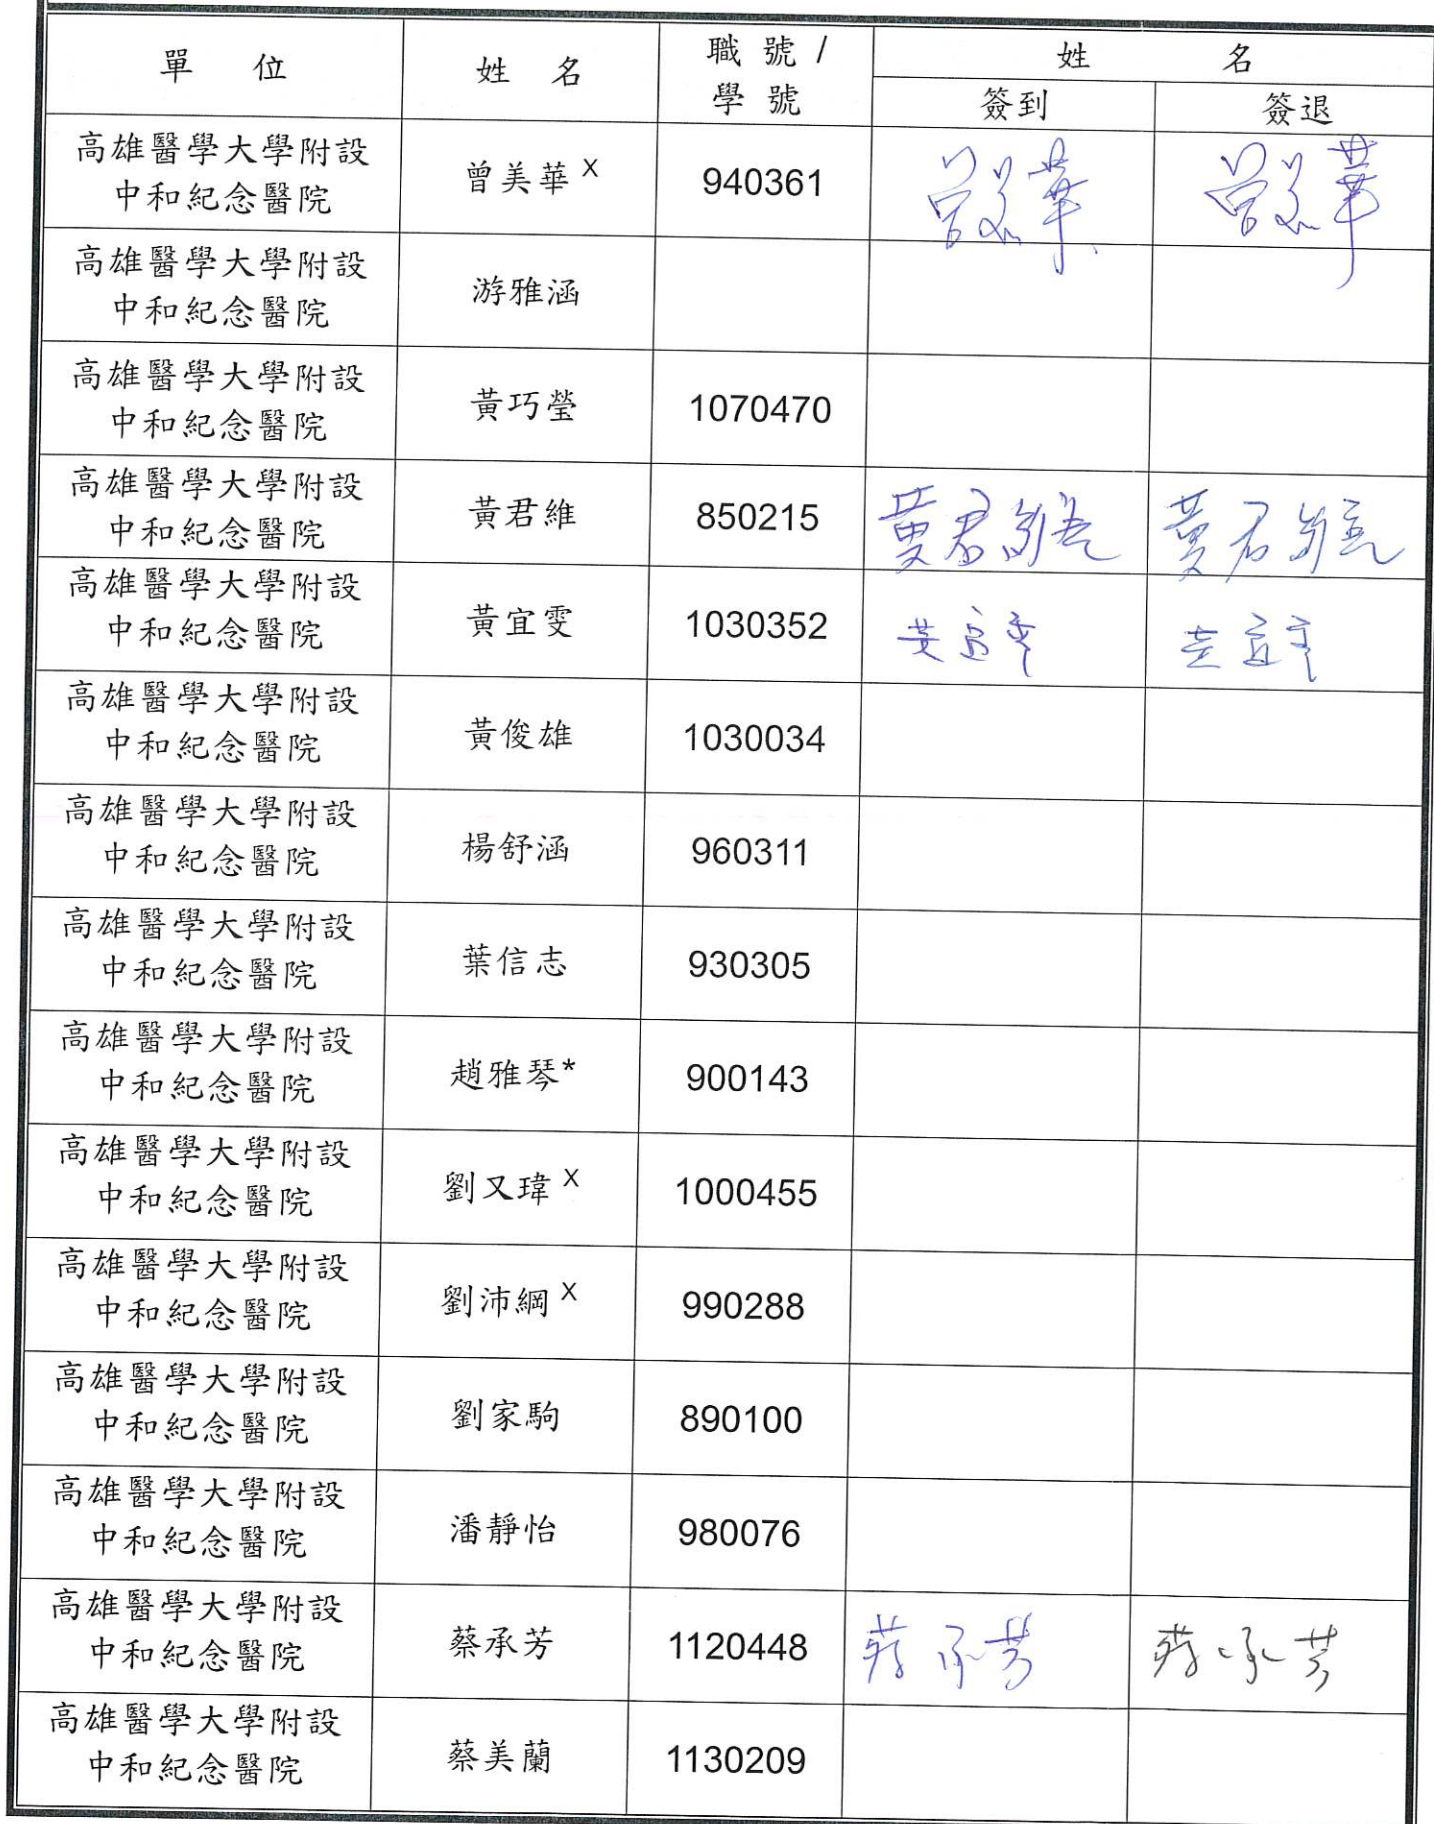 單 位 姓 名 職 號 / 姓 名
學 號 簽到 簽退
高雄醫學大學附設
中和紀念醫院 曾美華 X 940361 曾美華 曾美華
高雄醫學大學附設
中和紀念醫院 游雅涵
高雄醫學大學附設
中和紀念醫院 黃巧瑩 1070470
高雄醫學大學附設
中和紀念醫院 黃君維 850215 黃君維 黃君維
高雄醫學大學附設
中和紀念醫院 黃宜雯 1030352 黃宜雯 黃宜雯
高雄醫學大學附設
中和紀念醫院 黃俊雄 1030034
高雄醫學大學附設
中和紀念醫院 楊舒涵 960311
高雄醫學大學附設
中和紀念醫院 葉信志 930305
高雄醫學大學附設
中和紀念醫院 趙雅琴* 900143
高雄醫學大學附設
中和紀念醫院 劉又瑋 X 1000455
高雄醫學大學附設
中和紀念醫院 劉沛綱 X 990288
高雄醫學大學附設
中和紀念醫院 劉家駒 890100
高雄醫學大學附設
中和紀念醫院 潘靜怡 980076
高雄醫學大學附設
中和紀念醫院 蔡承芳 1120448 蔡承芳 蔡承芳
高雄醫學大學附設
中和紀念醫院 蔡美蘭 1130209